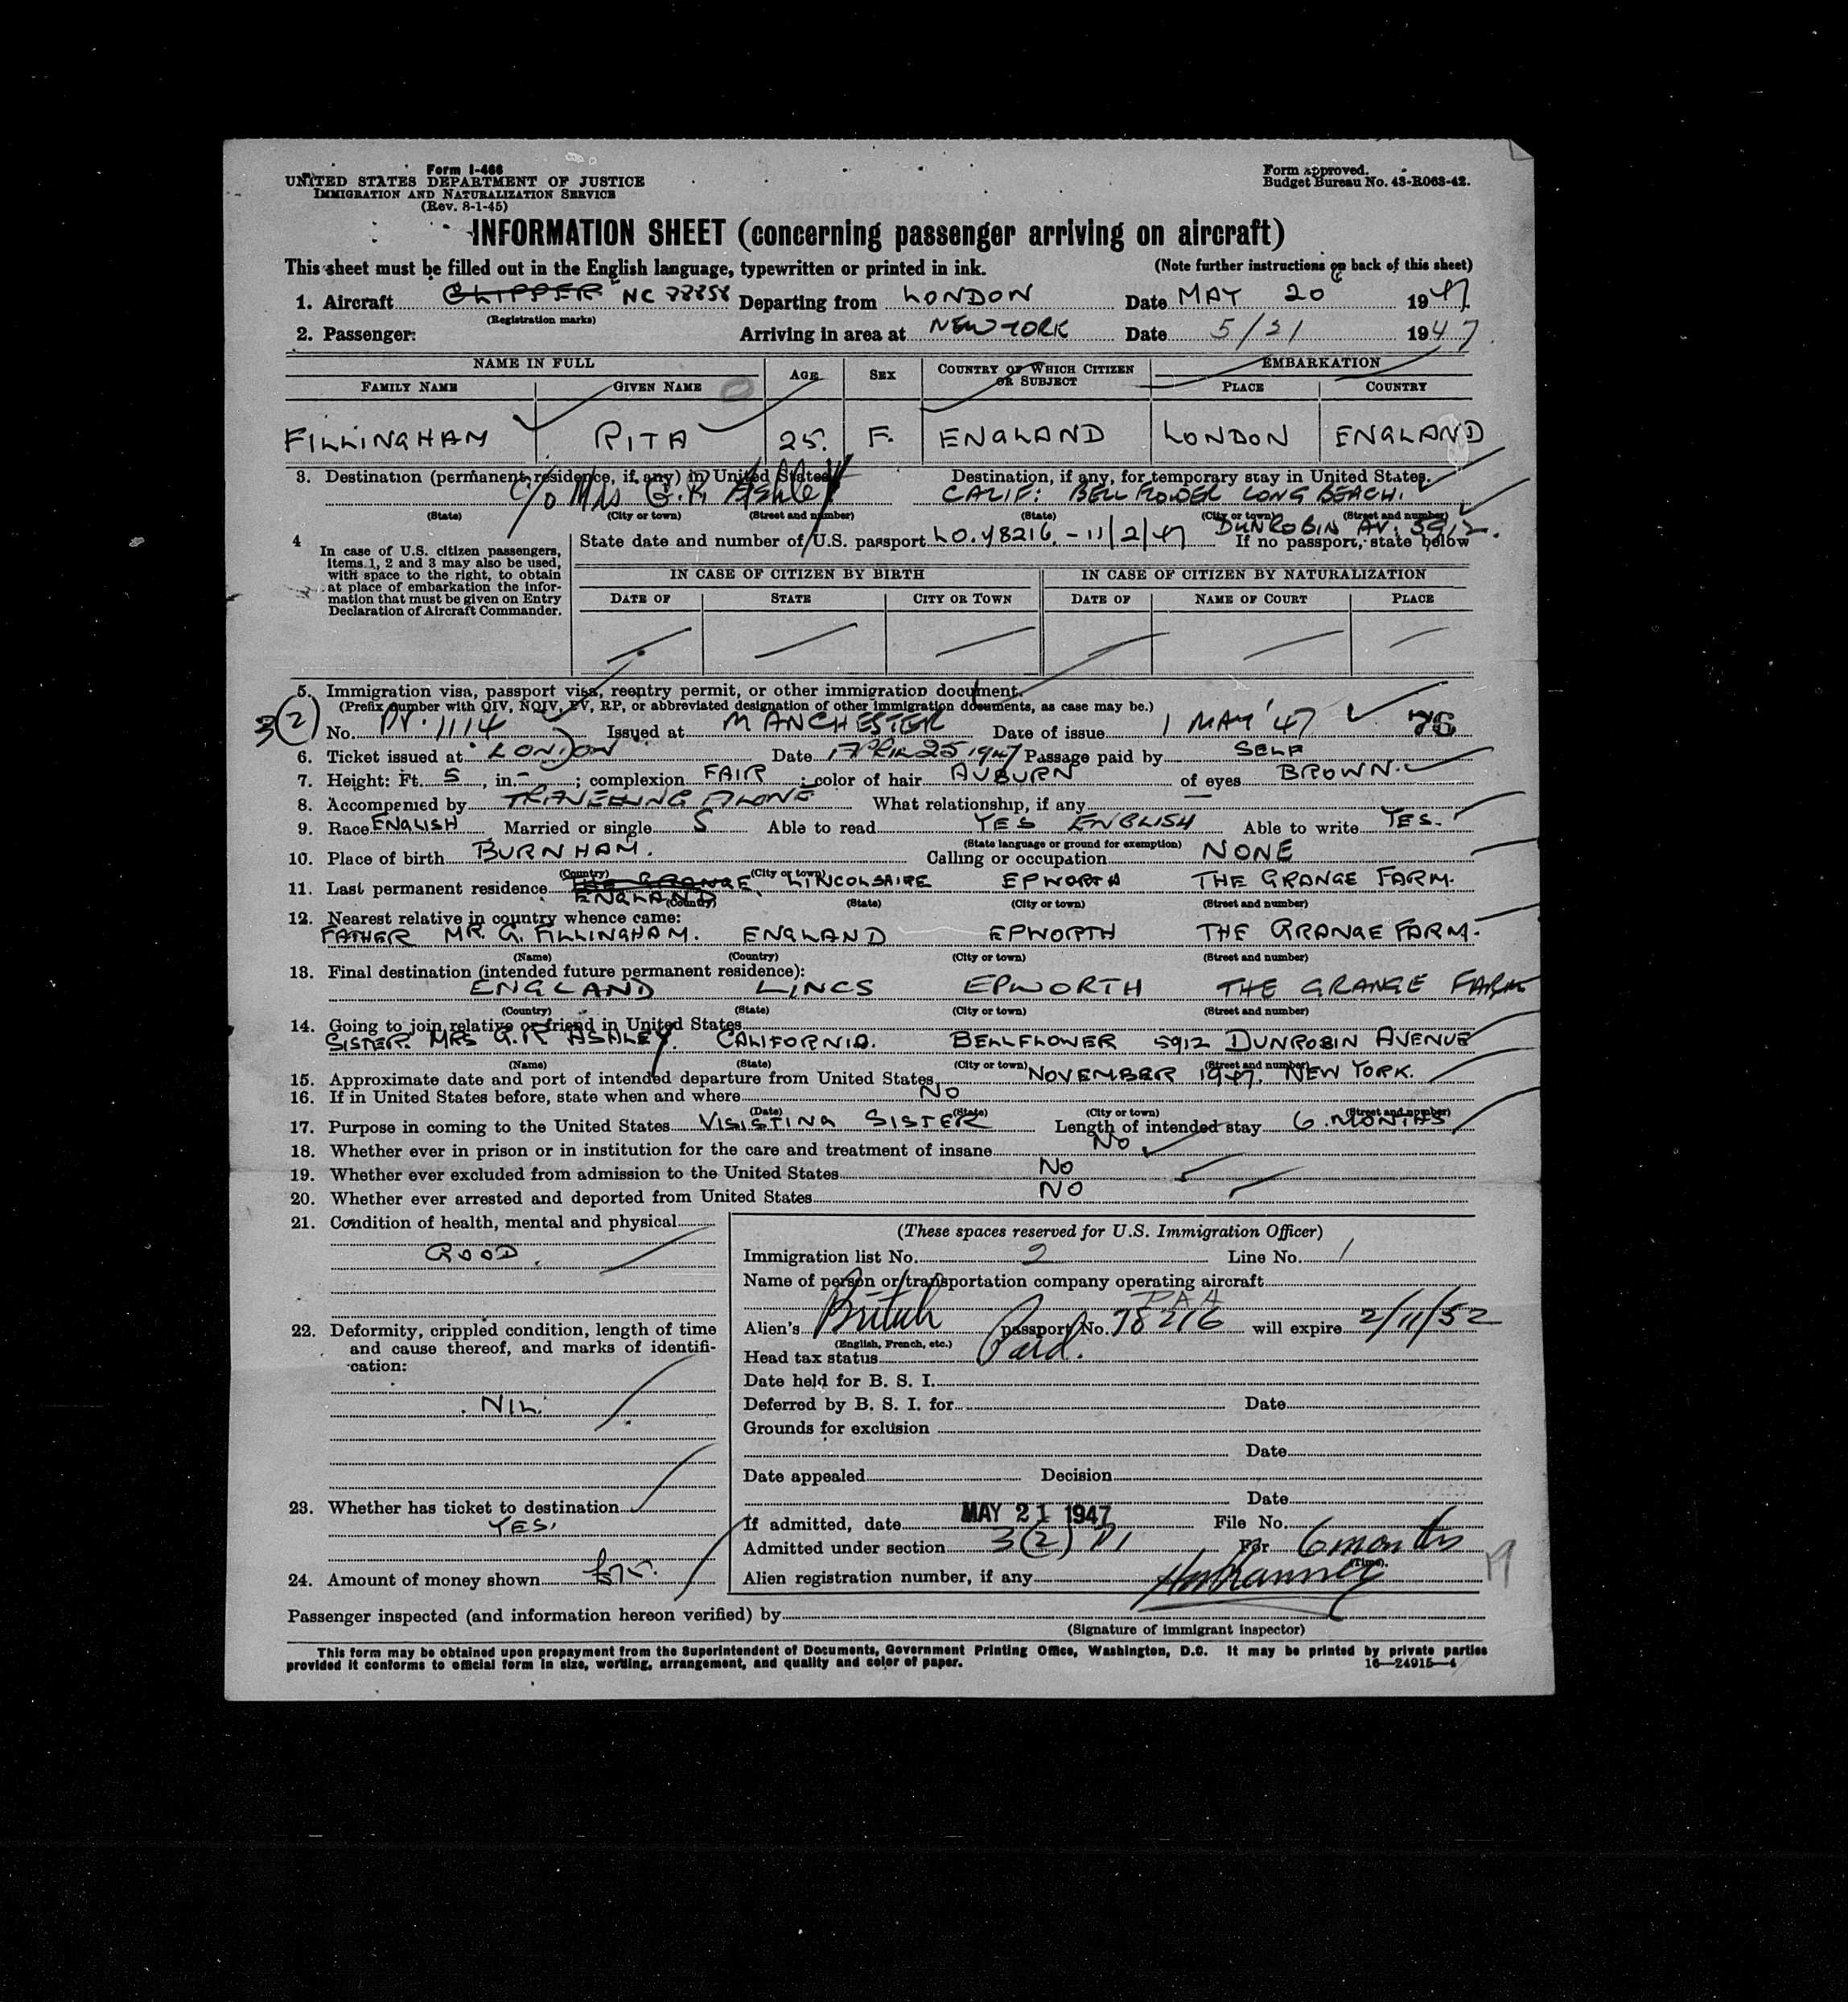 Form I-466
UNITED STATES DEPARTMENT OF JUSTICE
IMMIGRATION AND NATURALIZATION SERVICE
(Rev. 8-1-45)
Form approved.
Budget Bureau No. 43-R063-42.
INFORMATION SHEET (concerning passenger arriving on aircraft)
This sheet must be filled out in the English language, typewritten or printed in ink. (Note further instructions on back of this sheet)
1. Aircraft CLIPPER NC 88858 Departing from LONDON Date MAY 20 1947
(Registration marks)
2. Passenger: Arriving in area at NEW YORK Date 5/21 1947
NAME IN FULL AGE SEX COUNTRY OF WHICH CITIZEN OR SUBJECT EMBARKATION
FAMILY NAME GIVEN NAME PLACE COUNTRY
FILLINGHAM RITA 25. F. ENGLAND LONDON ENGLAND
3. Destination (permanent residence, if any) in United States Destination, if any, for temporary stay in United States.
c/o Mrs G.R. Ashley CALIF: BELLFLOWER LONG BEACH.
(State) (City or town) (Street and number) (State) (City or town) (Street and number)
DUNROBIN AV. 5912.
4 In case of U.S. citizen passengers, items 1, 2 and 3 may also be used, with space to the right, to obtain at place of embarkation the information that must be given on Entry Declaration of Aircraft Commander.
State date and number of U.S. passport LO. 78216. - 11/2/47 If no passport, state below
IN CASE OF CITIZEN BY BIRTH IN CASE OF CITIZEN BY NATURALIZATION
DATE OF STATE CITY OR TOWN DATE OF NAME OF COURT PLACE
5. Immigration visa, passport visa, reentry permit, or other immigration document.
(Prefix number with QIV, NQIV, PV, RP, or abbreviated designation of other immigration documents, as case may be.)
3(2) No. PV. 1114 Issued at MANCHESTER Date of issue 1 MAY '47
6. Ticket issued at LONDON Date APRIL 25 1947 Passage paid by SELF
7. Height: Ft. 5, in. - ; complexion FAIR ; color of hair AUBURN of eyes BROWN.
8. Accompanied by TRAVELLING ALONE What relationship, if any
9. Race ENGLISH Married or single S Able to read YES ENGLISH Able to write YES.
(State language or ground for exemption)
10. Place of birth BURNHAM. Calling or occupation NONE
(Country) (City or town)
11. Last permanent residence THE GRANGE, ENGLAND LINCOLSHIRE EPWORTH THE GRANGE FARM.
(Country) (State) (City or town) (Street and number)
12. Nearest relative in country whence came:
FATHER MR. G. FILLINGHAM. ENGLAND EPWORTH THE GRANGE FARM.
(Name) (Country) (City or town) (Street and number)
13. Final destination (intended future permanent residence):
ENGLAND LINCS EPWORTH THE GRANGE FARM
(Country) (State) (City or town) (Street and number)
14. Going to join relative or friend in United States
SISTER. MRS G.R ASHLEY. CALIFORNIA. BELLFLOWER 5912 DUNROBIN AVENUE
(Name) (State) (City or town) (Street and number)
15. Approximate date and port of intended departure from United States NOVEMBER 1947. NEW YORK.
16. If in United States before, state when and where NO
(Date) (State) (City or town) (Street and number)
17. Purpose in coming to the United States VISISTING SISTER Length of intended stay 6 MONTHS
18. Whether ever in prison or in institution for the care and treatment of insane NO
19. Whether ever excluded from admission to the United States NO
20. Whether ever arrested and deported from United States NO
21. Condition of health, mental and physical
GOOD.
22. Deformity, crippled condition, length of time and cause thereof, and marks of identification:
NIL.
23. Whether has ticket to destination
YES.
24. Amount of money shown
(These spaces reserved for U.S. Immigration Officer)
Immigration list No. 2 Line No. 1
Name of person or transportation company operating aircraft
PAA
Alien's British passport No. 78216 will expire 2/11/52
(English, French, etc.)
Head tax status Paid.
Date held for B. S. I.
Deferred by B. S. I. for Date
Grounds for exclusion
Date
Date appealed Decision
Date
If admitted, date MAY 21 1947 File No.
Admitted under section 3(2) For 6 months
(Time)
Alien registration number, if any
Passenger inspected (and information hereon verified) by
(Signature of immigrant inspector)
This form may be obtained upon prepayment from the Superintendent of Documents, Government Printing Office, Washington, D.C. It may be printed by private parties
provided it conforms to official form in size, wording, arrangement, and quality and color of paper. 16—24915-4